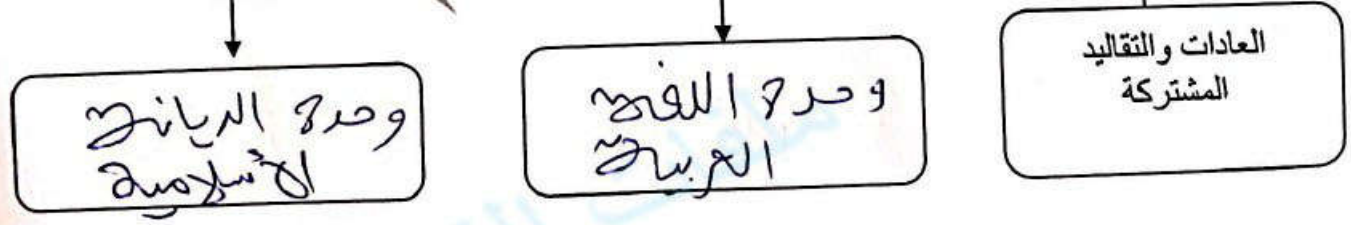 العادات والتقاليد
المشتركة
وحدة اللغة
العربية
وحدة الديانة
الأسلامية